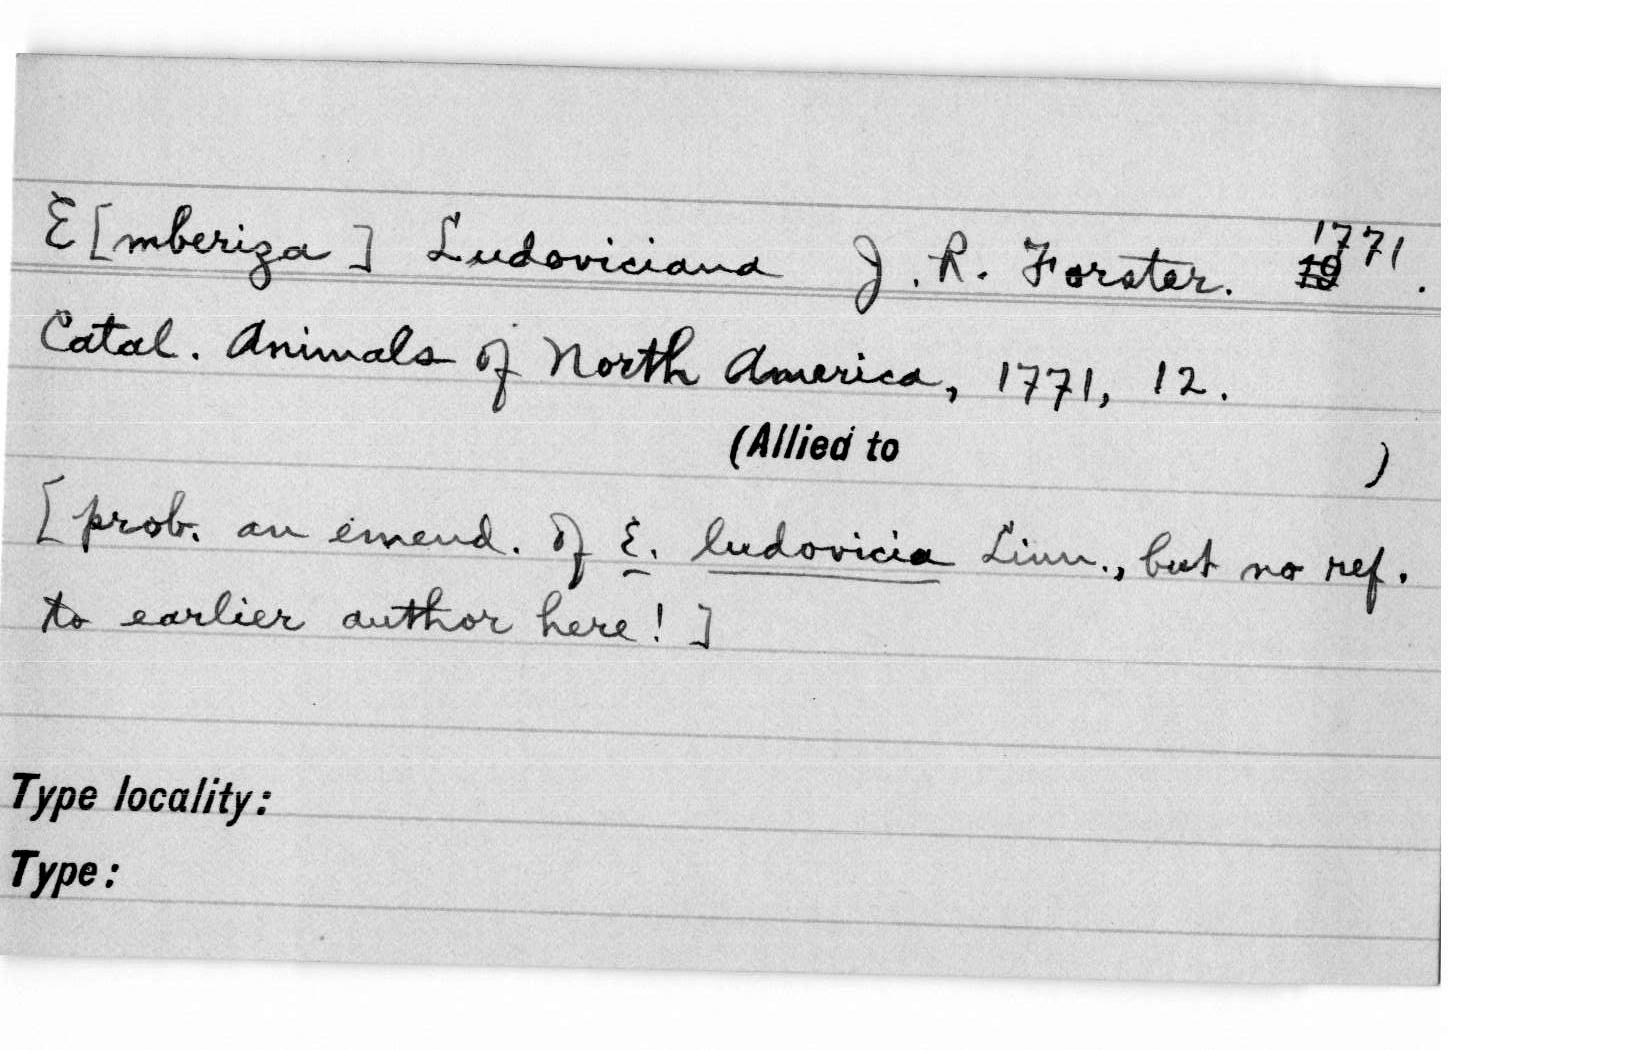 E[mberiza] Ludoviciana J. R. Forster. 1771.
Catal. Animals of North America, 1771, 12.
(Allied to )
[prob. an emend. of E. ludovicia Linn., but no ref.
to earlier author here!]
Type locality:
Type: